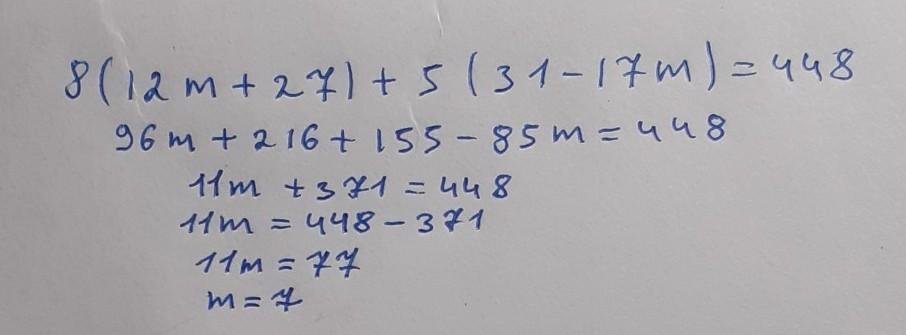 8(12m+27)+5(31-17m)=448
96m+216+155-85m=448
11m+371=448
11m=448-371
11m=77
m=7